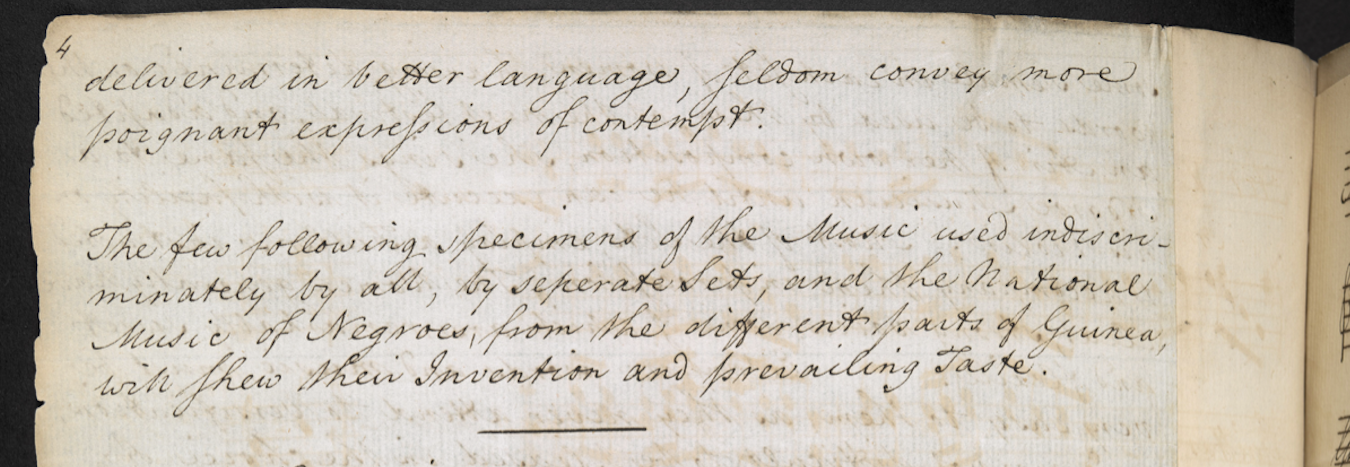 4
delivered in better language, seldom convey more
poignant expressions of contempt.
The few following specimens of the Music used indiscri-
minately by all, by seperate Sets, and the National
Music of Negroes, from the different parts of Guinea,
will shew their Invention and prevailing Taste.